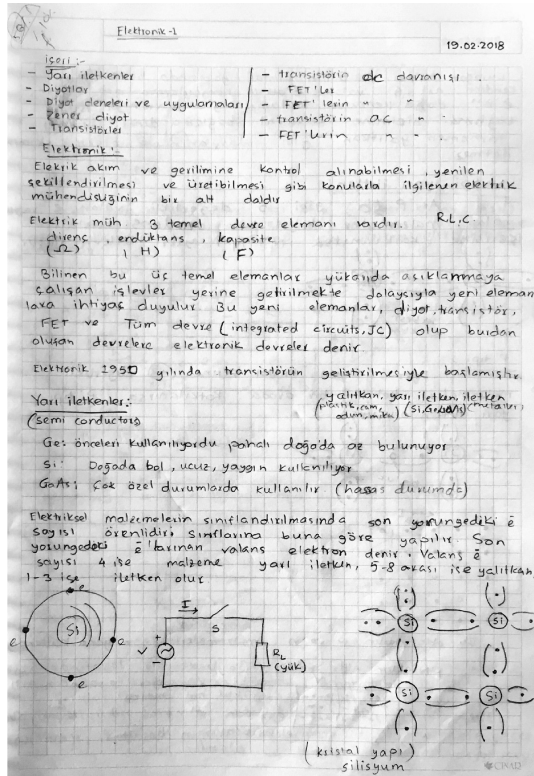 Elektronik-1
19.02.2018
içeri :-
- Yarı iletkenler
- Diyotlar
- Diyot deneleri ve uygulamaları
- Zener diyot
- Transistörler
- transistörin dc davranışı .
- FET'ler
- FET'lerin " "
- transistörin ac "
- FET'lerin " " .
Elektronik :
Elekrik akım ve gerilimine kontrol alınabilmesi , yenilen
şekillendirilmesi ve üretibilmesi gibi konularla ilgilenen elektrik
mühendisliğinin bir alt daldır
Elektrik müh 3 temel devre elemanı vardır. R.L.C
direnç , endüktans , kapasite
(Ω) (H) (F)
Bilinen bu üç temel elemanlar yukarıda açıklanmaya
çalışan işlevler yerine getirilmekte dolaysıyla yeni eleman
lara ihtiyaç duyulur Bu yeni elemanlar, diyot, transistör,
FET ve Tüm devre (integrated circuits, JC) olup burdan
oluşan devrelere elektronik devreler denir.
Elektronik 1950 yılında transistörün geliştirilmesiyle başlamıştır.
Yarı iletkenler :-
(semi conductors)
yalıtkan, yarı iletken, iletken
(plastik, cam, odun, mika) (Si, Ge, GaAs) (metaller)
Ge: önceleri kullanılıyordu pahalı doğo'da az bulunuyor
Si: Doğada bol , ucuz , yaygın kullanılıyor
GaAs: Çok özel durumlarda kullanılır (hassas durumda)
Elektriksel malzemelerin sınıflandırılmasında son yorungedeki ē
sayısı önemlidir. sınıflarına buna göre yapılır. Son
yorungedeki ē'larınan valans elektron denir. Valans ē
sayısı 4 ise malzeme yarı iletken, 5-8 arası ise yalıtkan,
1-3 ise iletken olur
e
e
Si
e
e
I
S
V
+
-
RL
(yük)
Si
Si
Si
Si
(kristal yapı)
silisyum